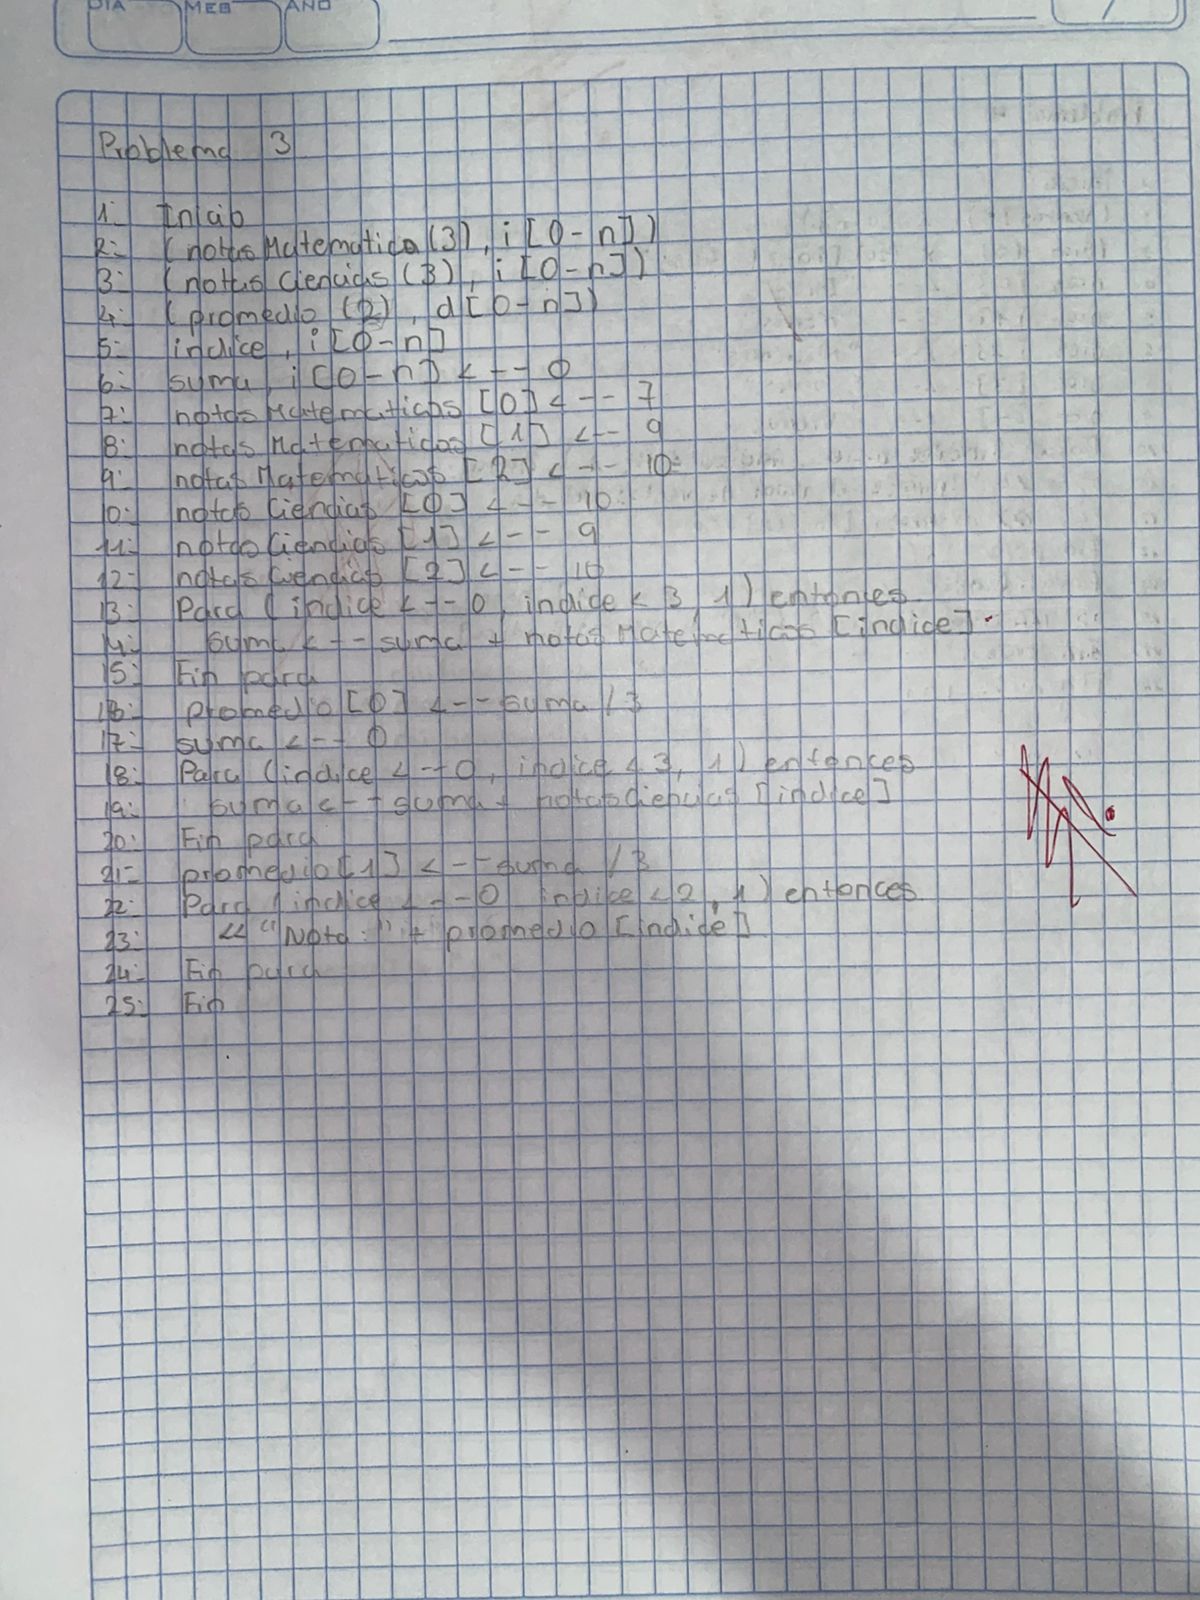 DIA MES AÑO
Problema 3
1: Inicio
2: (notasMatematica(3), i[0-n])
3: (notasCiencias(3), i[0-n])
4: (promedio(2), d[0-n])
5: indice, i[0-n]
6: suma, i[0-n] <-- 0
7: notasMatematicas[0] <-- 7
8: notasMatematicas[1] <-- 9
9: notasMatematicas[2] <-- 10
10: notasCiencias[0] <-- 10
11: notasCiencias[1] <-- 9
12: notasCiencias[2] <-- 10
13: Para (indice <-- 0, indice < 3, 1) entonces
14: suma <-- suma + notasMatematicas[indice]
15: Fin para
16: promedio[0] <-- suma / 3
17: suma <-- 0
18: Para (indice <-- 0, indice < 3, 1) entonces
19: suma <-- suma + notasCiencias[indice]
20: Fin para
21: promedio[1] <-- suma / 3
22: Para (indice <-- 0 indice < 2, 1) entonces
23: << "Nota:" + promedio[indice]
24: Fin para
25: Fin